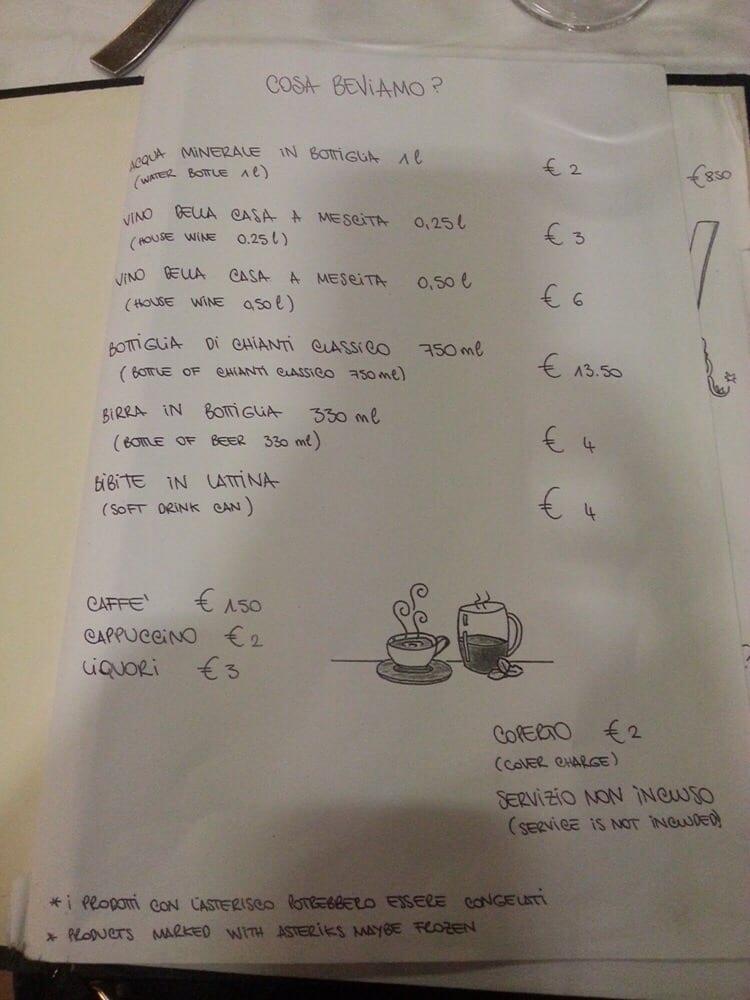 COSA BEVIAMO?
ACQUA MINERALE IN BOTTIGLIA 1l
(WATER BOTTLE 1l) € 2
€ 8.50
VINO DELLA CASA A MESCITA 0,25l
(HOUSE WINE 0.25l) € 3
VINO DELLA CASA A MESCITA 0,50l
(HOUSE WINE 0,50l) € 6
BOTTIGLIA DI CHIANTI CLASSICO 750ml
(BOTTLE OF CHIANTI CLASSICO 750ml) € 13.50
BIRRA IN BOTTIGLIA 330 ml
(BOTTLE OF BEER 330 ml) € 4
BIBITE IN LATTINA
(SOFT DRINK CAN) € 4
CAFFE' € 1.50
CAPPUCCINO € 2
LIQUORI € 3
COPERTO € 2
(COVER CHARGE)
SERVIZIO NON INCLUSO
(SERVICE IS NOT INCLUDED)
* I PRODOTTI CON L'ASTERISCO POTREBBERO ESSERE CONGELATI
* PRODUCTS MARKED WITH ASTERIKS MAYBE FROZEN